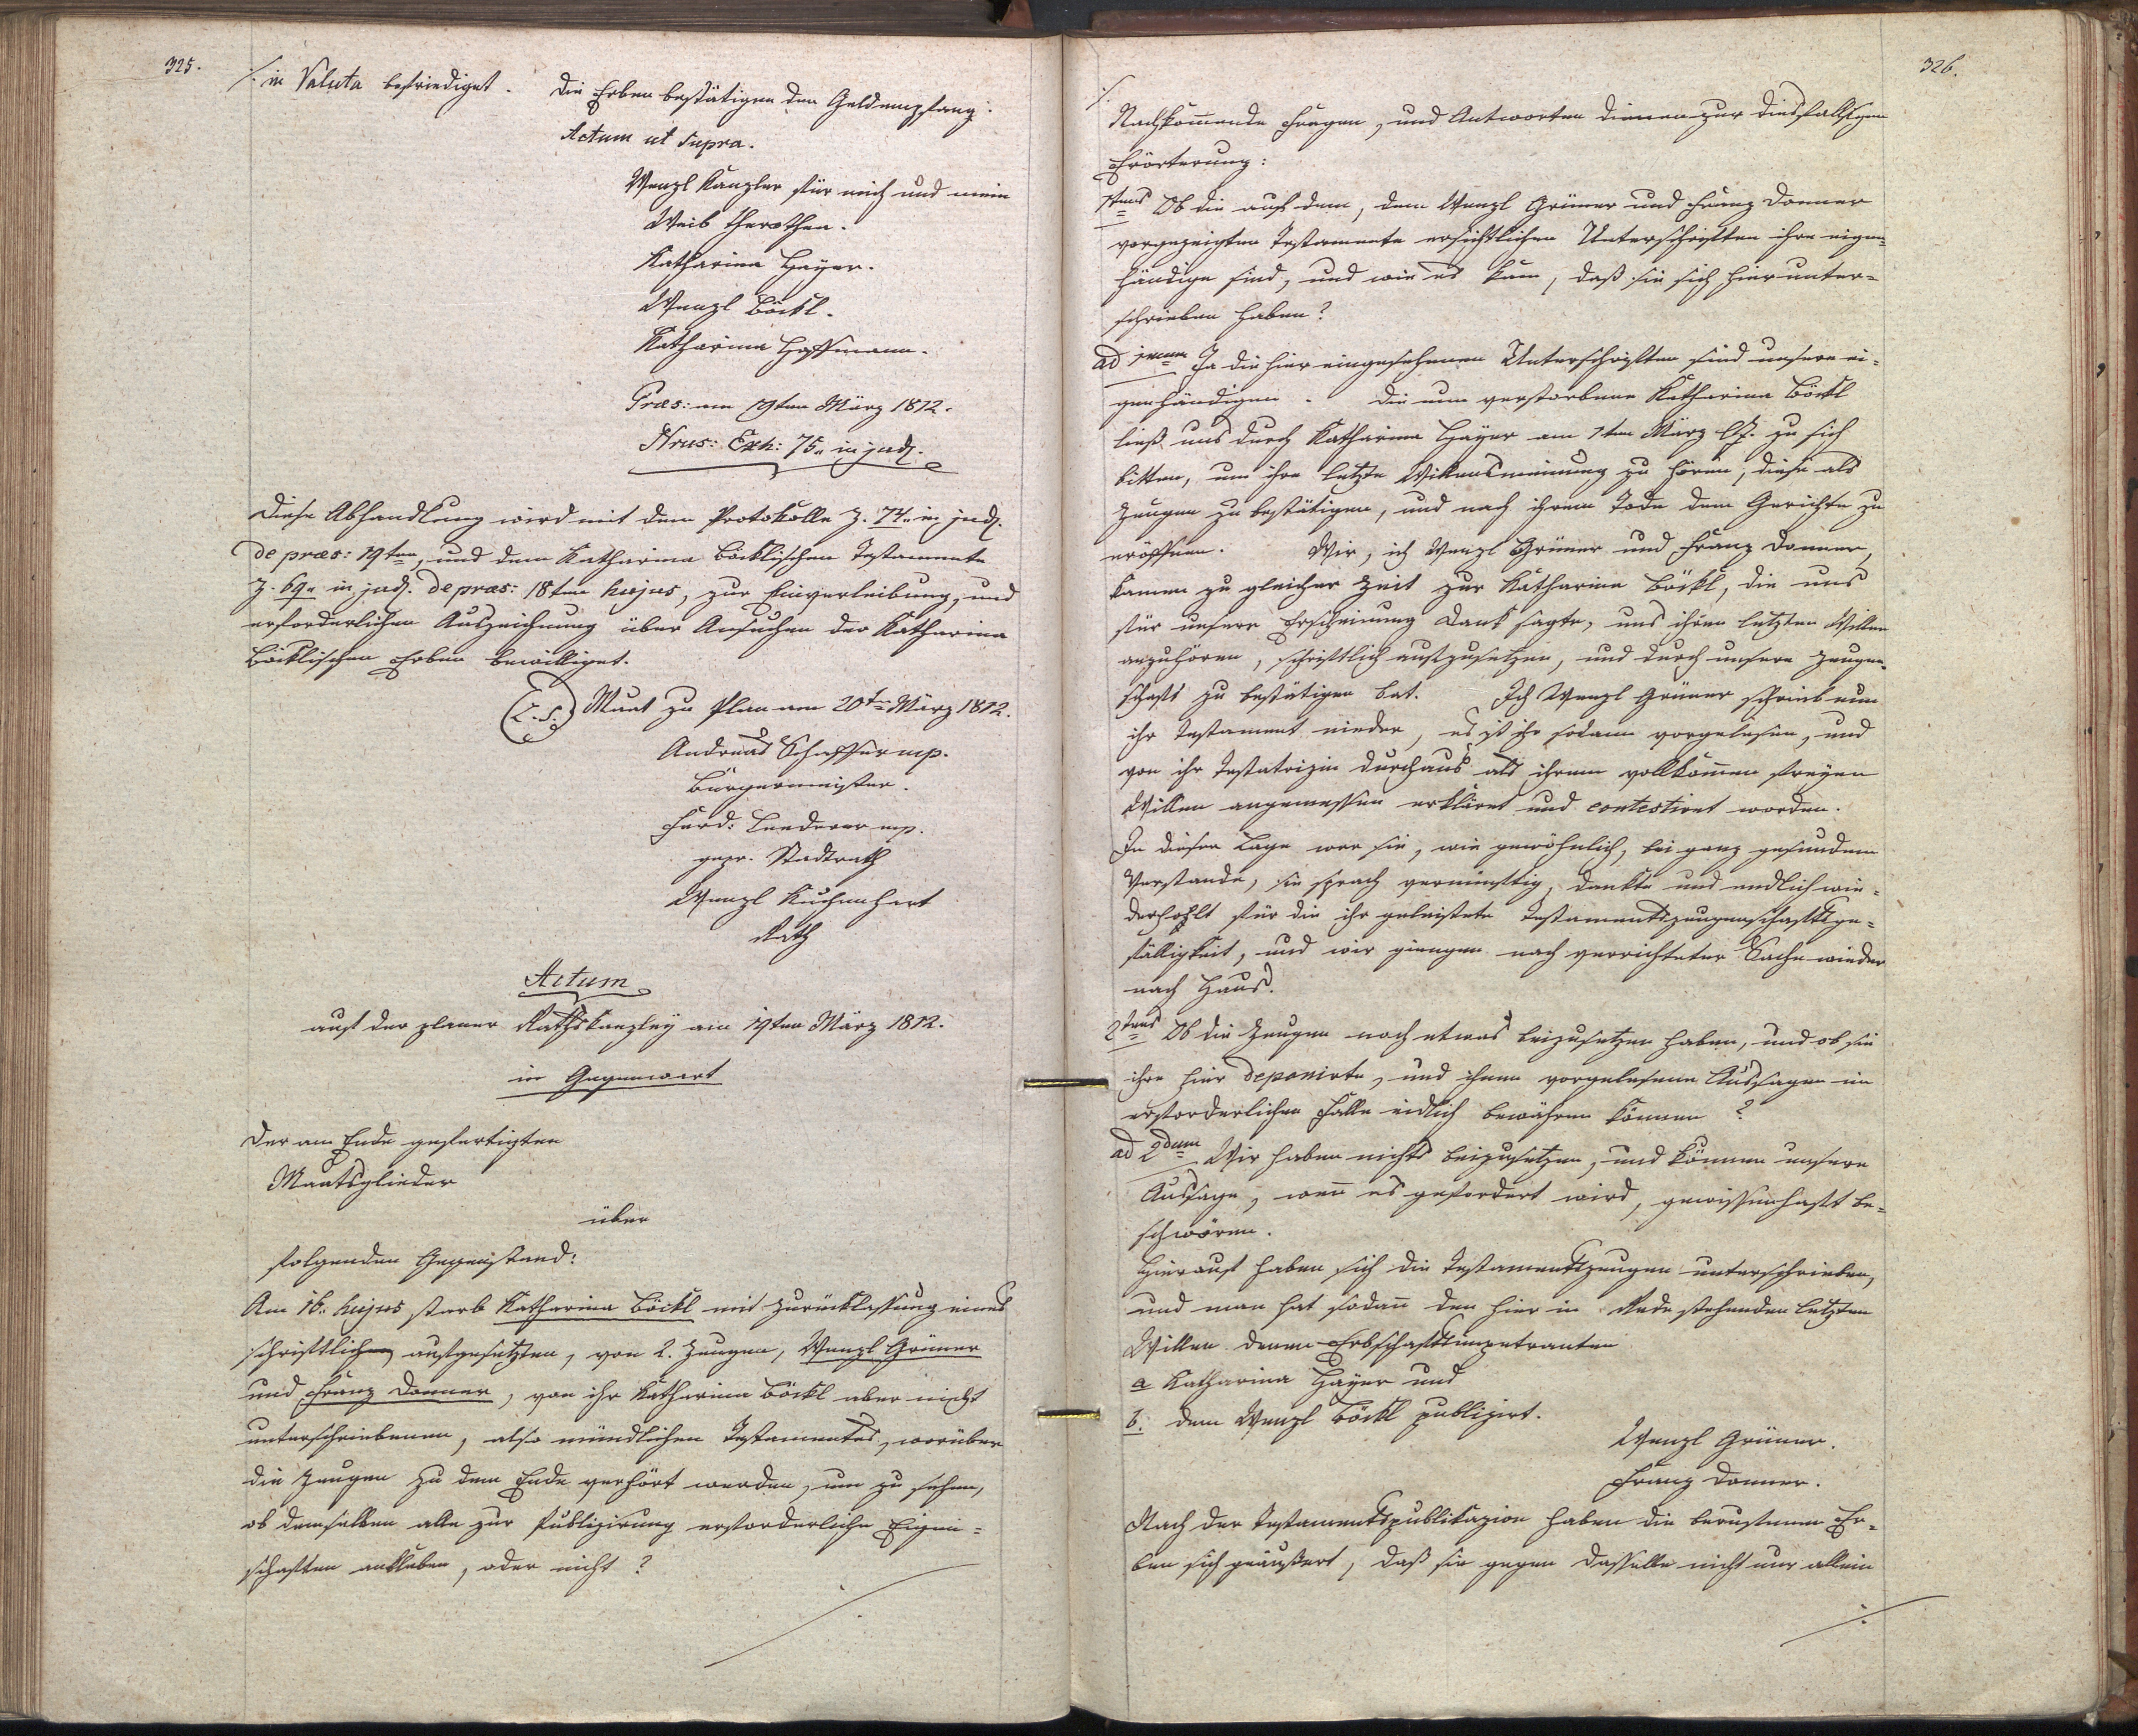 325.
./. in Valuta befriediget. Die Erben bestätigen den Geldempfang.
Actum ut supra.
Wenzl Kanzler für mich und mein
Weib Therothea.
Katharina Hayer.
Wenzl Böckl.
Katharina Hoffmann.
Præs: am 19ten März 1812.
Nrus: Exh: 75. in jud.
Diese Abhandlung wird mit dem Protokolle Z. 74. in jud.
de præs: 19ten, und dem Katharina Böcklischen Testamente
Z. 69. in jud. de præs: 18ten hujus, zur Einverleibung, und
erforderlichen Auszeichnung über Ansuchen der Katharina
Böcklischen Erben bewilliget.
(L.S.) Maat zu Plan am 20ten März 1812.
Andreas Schaffer mp.
Bürgermeister.
Ferd: Lenderer mp.
gepr. Stadtrath
Wenzl Kuchenhart
Rath
Actum
auf der planer Rathskanzley am 19ten März 1812.
in Gegenwart
der am Ende gefertigten
Maatsglieder
über
folgenden Gegenstand:
Am 16. hujus starb Katharina Böckl mit Zurücklassung eines
schriftlichen aufgesetzten, von 2. Zeugen, Wenzl Grüner
und Franz Donner, von ihr Katharina Böckl aber nicht
unterschriebenen, also mündlichen Testamentes, worüber
die Zeugen zu dem Ende verhört werden, um zu sehen,
ob demselben alle zur Publizirung erforderliche Eigen=
schaften ankleben, oder nicht?
./.
326.
./.
Nachkommende Fragen, und Antworten dienen zur diesfälligen
Erörterung:
1tens Ob die auf dem, dem Wenzl Grüner und Franz Donner
vorgezeigten Testamente ersichtlichen Unterschriften ihre eigen=
händige sind, und wie es kam, daß sie sich hier unter=
schrieben haben?
ad 1mum Ja die hier eingesehenen Unterschriften sind unsere ei=
genhändigen. Die nun verstorbene Katharina Böckl
ließ uns durch Katharina Hayer am 1ten März l. J. zu sich
bitten, um ihre letzte Willensmeinung zu hören, diese als
Zeugen zu bestätigen, und nach ihrem Tode dem Gerichte zu
eröffnen. Wir, ich Wenzl Grüner und Franz Donner,
kamen zu gleicher Zeit zur Katharina Böckl, die uns
für unsere Erscheinung Dank sagte, uns ihren letzten Willen
anzuhören, schriftlich aufzusetzen, und durch unsere Zeugen=
schaft zu bestätigen bat. Ich Wenzl Grüner schrieb nun
ihr Testament nieder, es ist ihr sodann vorgelesen, und
von ihr Testatrizin durchaus als ihrem vollkommen freyen
Willen angemessen erkläret und contestiret worden.
In dieser Lage war sie, wie gewöhnlich, bei ganz gesundem
Verstande, sie sprach vernünftig, dankte uns endlich wie=
derhohlt für die ihr geleistete Testamentszeugenschaftsge=
fälligkeit, und wir giengen nach verrichteter Sache wieder
nach Haus.
2tens Ob die Zeugen noch etwas beizusetzen haben, und ob sie
ihre hier deponirte, und ihnen vorgelesene Aussagen im
erforderlichen Falle eidlich bewähren können?
ad 2dum Wir haben nichts beizusetzen, und können unsere
Aussage, wenn es gefordert wird, gewissenhaft be=
schwören.
Hierauf haben sich die Testamentszeugen unterschrieben,
und man hat sodann den hier in Rede stehenden letzten
Willen denen Erbschaftsimpetranten
a Katharina Hayer und
b. dem Wenzl Böckl publizirt.
Wenzl Grüner.
Franz Donner.
Nach der Testamentspublikazion haben die berufenen Er=
ben sich geäußert, daß sie gegen dasselbe nicht nur allein
./.